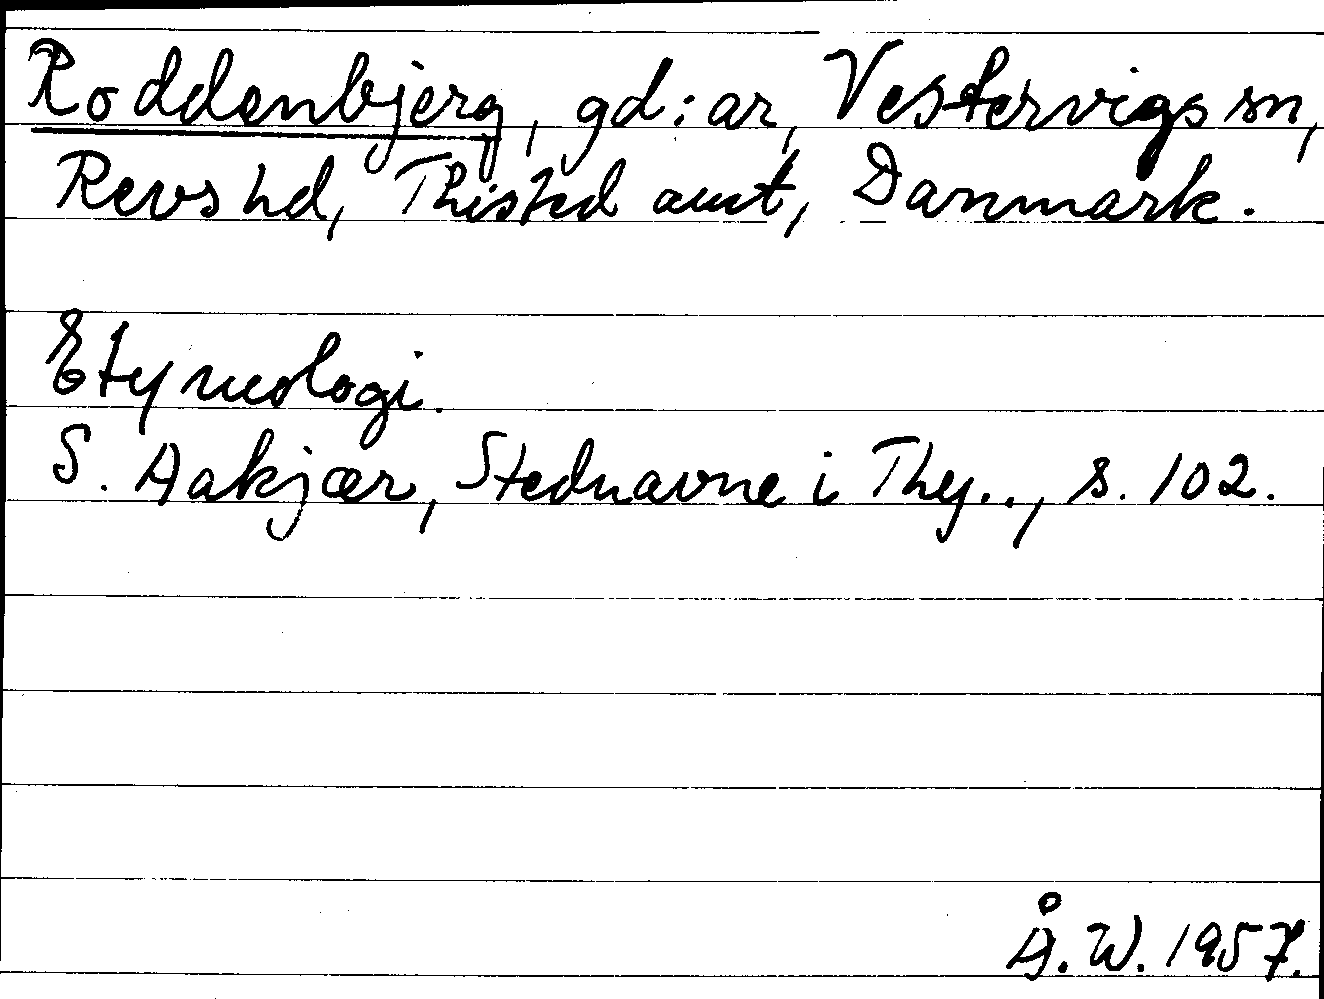 Roddenbjerg, gd:ar, Vestervigs sn,
Revs hd, Thisted amt, Danmark.
Etymologi.
S. Aakjær, Stednavne i Thy.., s. 102.
Å. W. 1957.